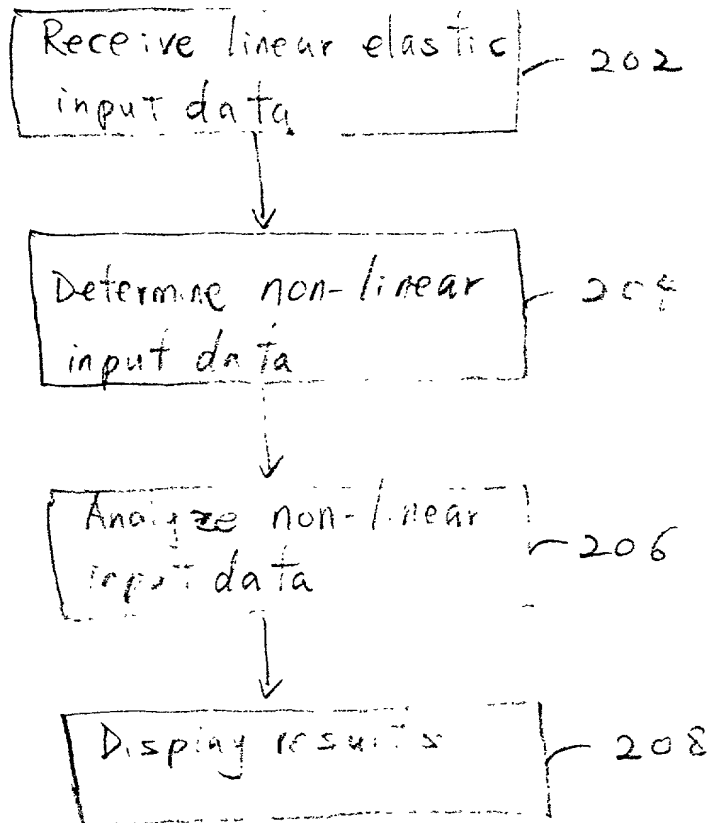 Receive linear elastic
input data
202
Determine non-linear
input data
204
Analyze non-linear
input data
206
Display results
208